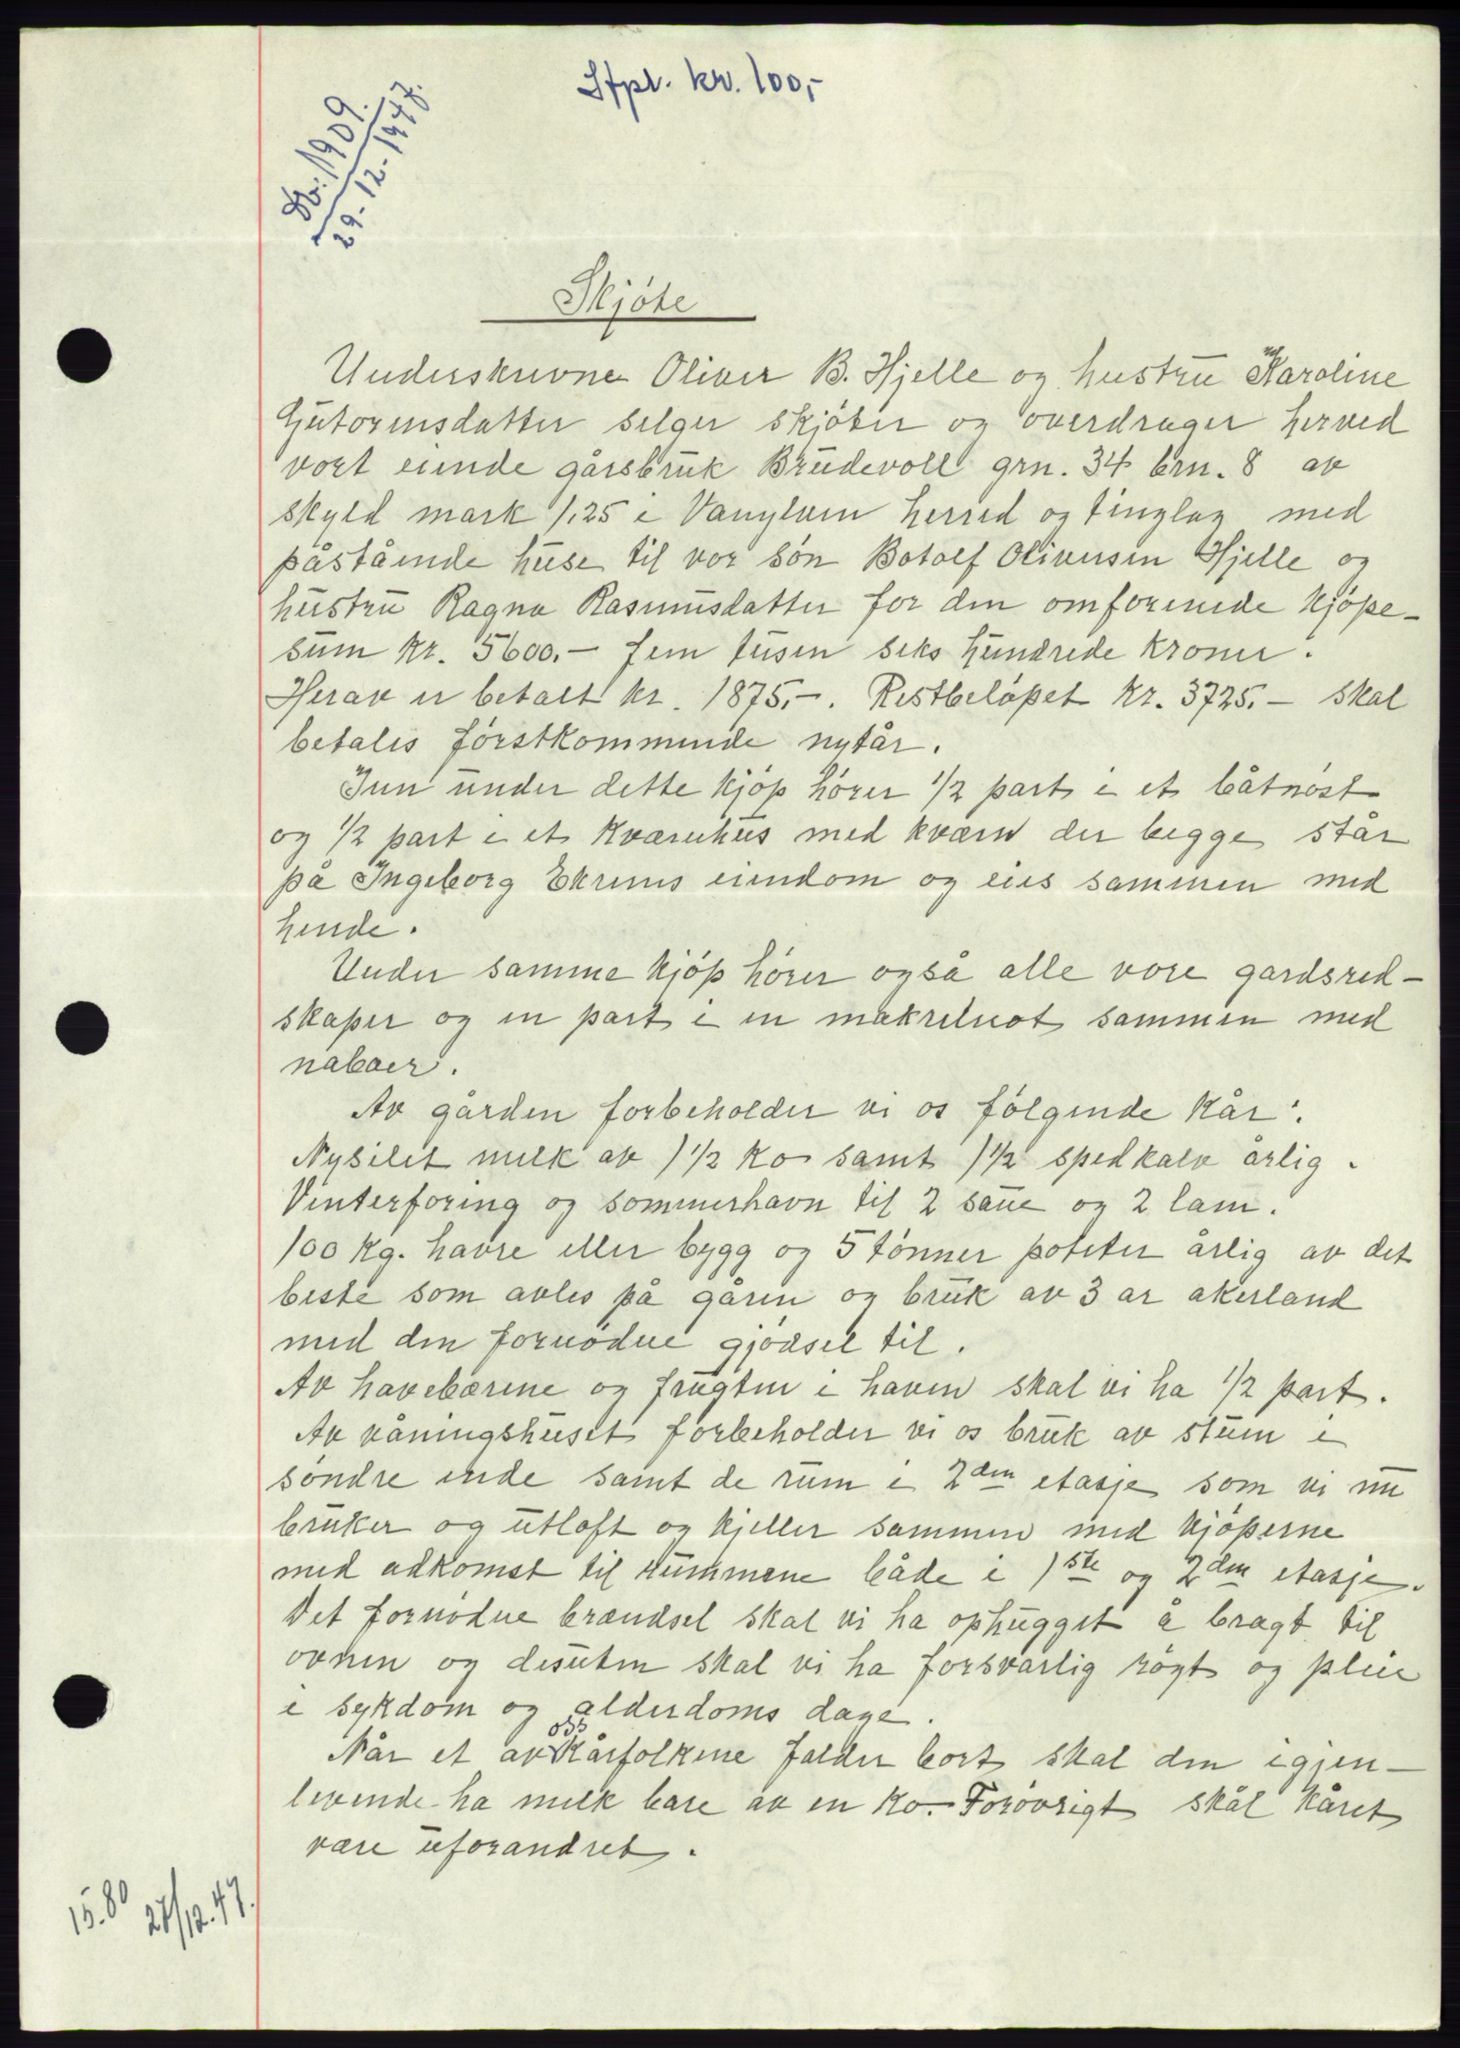 Stpl. kr. 100,-
Db: 1909.
29-12-1947.
Skjöte
Underskrivne Oliver B. Hjelle og hustru Karoline
Gutormsdatter selger skjöter og overdrager herved
vort eiende gårsbruk Brudevoll grn. 34 brn. 8 av
skyld mark 1,25 i Vanylven herred og tinglag med
påstående huse til vor sön Botolf Oliversen Hjelle og
hustru Ragna Rasmusdatter for den omforenede kjöpe-
sum kr. 5600,- fem tusen seks hundrede kroner.
Herav er betalt kr. 1875,-. Restbelöpet kr. 3725,- skal
betales förstkommende nytår.
Inn under dette kjöp hörer 1/2 part i et båtnöst
og 1/2 part i et kværnhus med kværn der begge står
på Ingeborg Ekrems eiendom og eies sammen med
hende.
Under samme kjöp hörer også alle vore gardsred-
skaper og en part i en makrelnot sammen med
naboer.
Av gården forbeholder vi os fölgende kår:
Nysilet melk av 1 1/2 ko samt 1 1/2 spedkalv årlig.
Vinterforing og sommerhavn til 2 saue og 2 lam.
100 kg. havre eller bygg og 5 tönner poteter årlig av det
beste som avles på gåren og bruk av 3 ar akerland
med den fornödne gjödsel til.
Av havebærene og frugten i haven skal vi ha 1/2 part.
Av våningshuset forbeholder vi os bruk av stuen i
söndre ende samt de rum i 2den etasje som vi nu
bruker og utloft og kjeller sammen med kjöperne
med adkomst til rummene både i 1ste og 2den etasje.
Det fornödne brændsel skal vi ha ophugget å bragt til
ovnen og desuten skal vi ha forsvarlig rögt og pleie
i sykdom og alderdoms dage.
Når et av oss kårfolkene falder bort skal den igjen-
levende ha melk bare av en ko. Forövrigt skal kåret
være uforandret.
15.80 27/12.47.